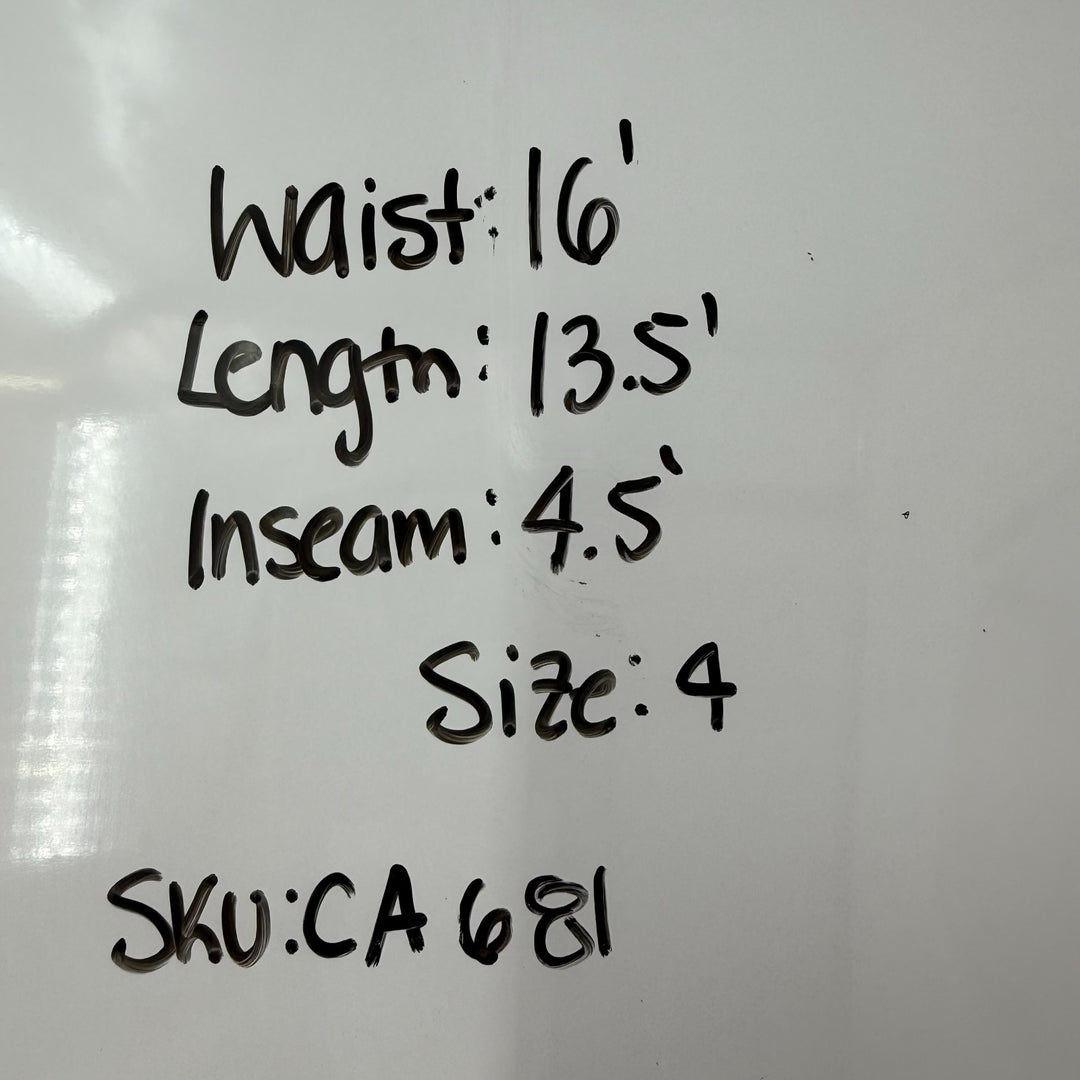 Waist: 16'
Length: 13.5'
Inseam: 4.5'
Size: 4
SKU: CA 681